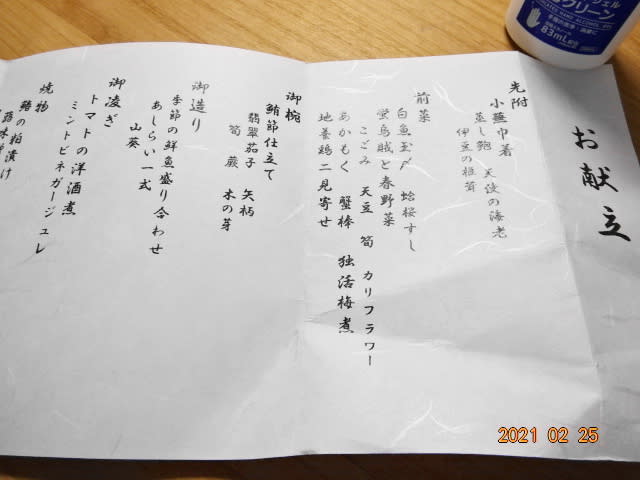 お献立
先附
小蕪巾着
蒸し鮑 天使の海老
伊豆の椎茸
前菜
白魚玉〆 蛤桜すし
蛍烏賊と春野菜
こごみ 天豆 筍 カリフラワー
あかもく 蟹棒 独活梅煮
地養鶏二見寄せ
御椀
鮪節仕立て
翡翠茄子 矢柄
筍 蕨 木の芽
御造り
季節の鮮魚盛り合わせ
あしらい一式
山葵
御凌ぎ
トマトの洋酒煮
ミントビネガージュレ
焼物
の粕漬け
クリーン
83mL
2021 02 25